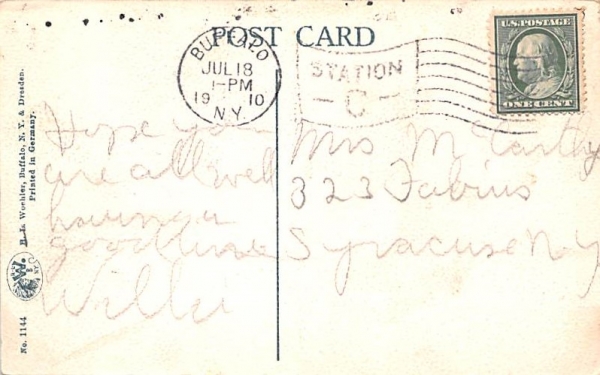 POST CARD
BUFFALO
JUL 18
1-PM
19 10
N.Y.
STATION
- C -
U.S. POSTAGE
ONE CENT
Hope you
are all well
having a
good time
Willie
Mrs McCarthy
323 Fabius
Syracuse N Y
Woehler, Buffalo, N. Y. & Dresden.
Printed in Germany.
W.
No. 1144